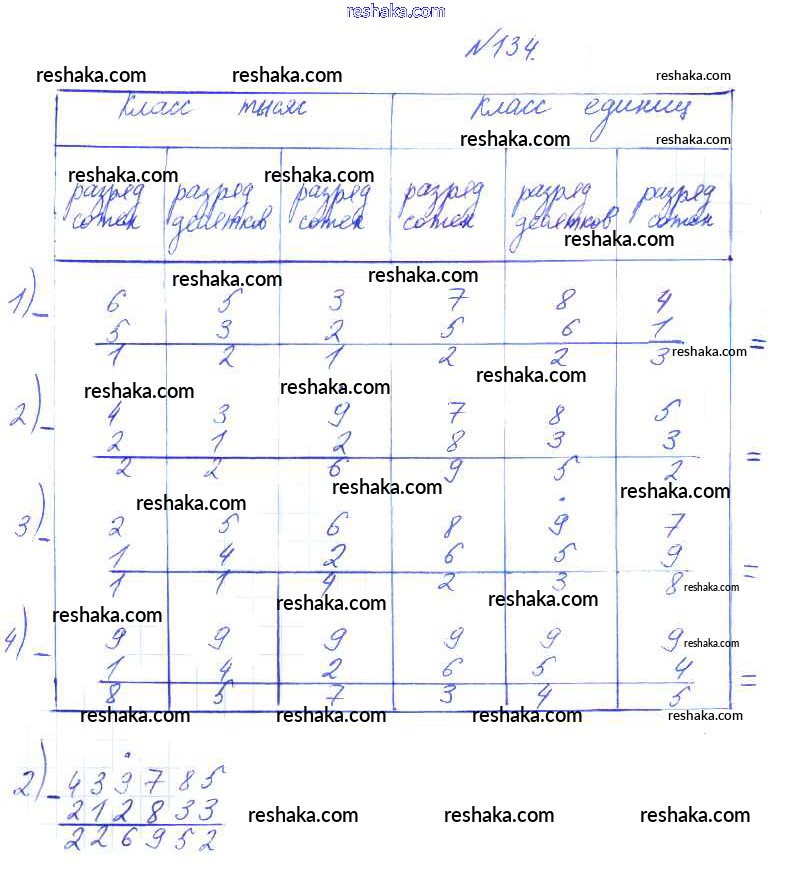 reshaka.com
№134.
reshaka.com reshaka.com reshaka.com
Класс тысяч Класс единиц
reshaka.com reshaka.com
reshaka.com reshaka.com
разряд разряд разряд разряд разряд разряд
сотен десятков сотен сотен десятков сотен
reshaka.com
reshaka.com reshaka.com
1) 6 5 3 7 8 4
- 5 3 2 5 6 1
1 2 1 2 2 3 =
reshaka.com
reshaka.com reshaka.com reshaka.com
2) 4 3 9 7 8 5
- 2 1 2 8 3 3
2 2 6 9 5 2 =
reshaka.com reshaka.com reshaka.com
3) 2 5 6 8 9 7
- 1 4 2 6 5 9
1 1 4 2 3 8 =
reshaka.com
reshaka.com reshaka.com reshaka.com
4) 9 9 9 9 9 9
reshaka.com
- 1 4 2 6 5 4
8 5 7 3 4 5 =
reshaka.com reshaka.com reshaka.com reshaka.com
2) - 4 3 9 7 8 5
2 1 2 8 3 3
2 2 6 9 5 2
reshaka.com reshaka.com reshaka.com